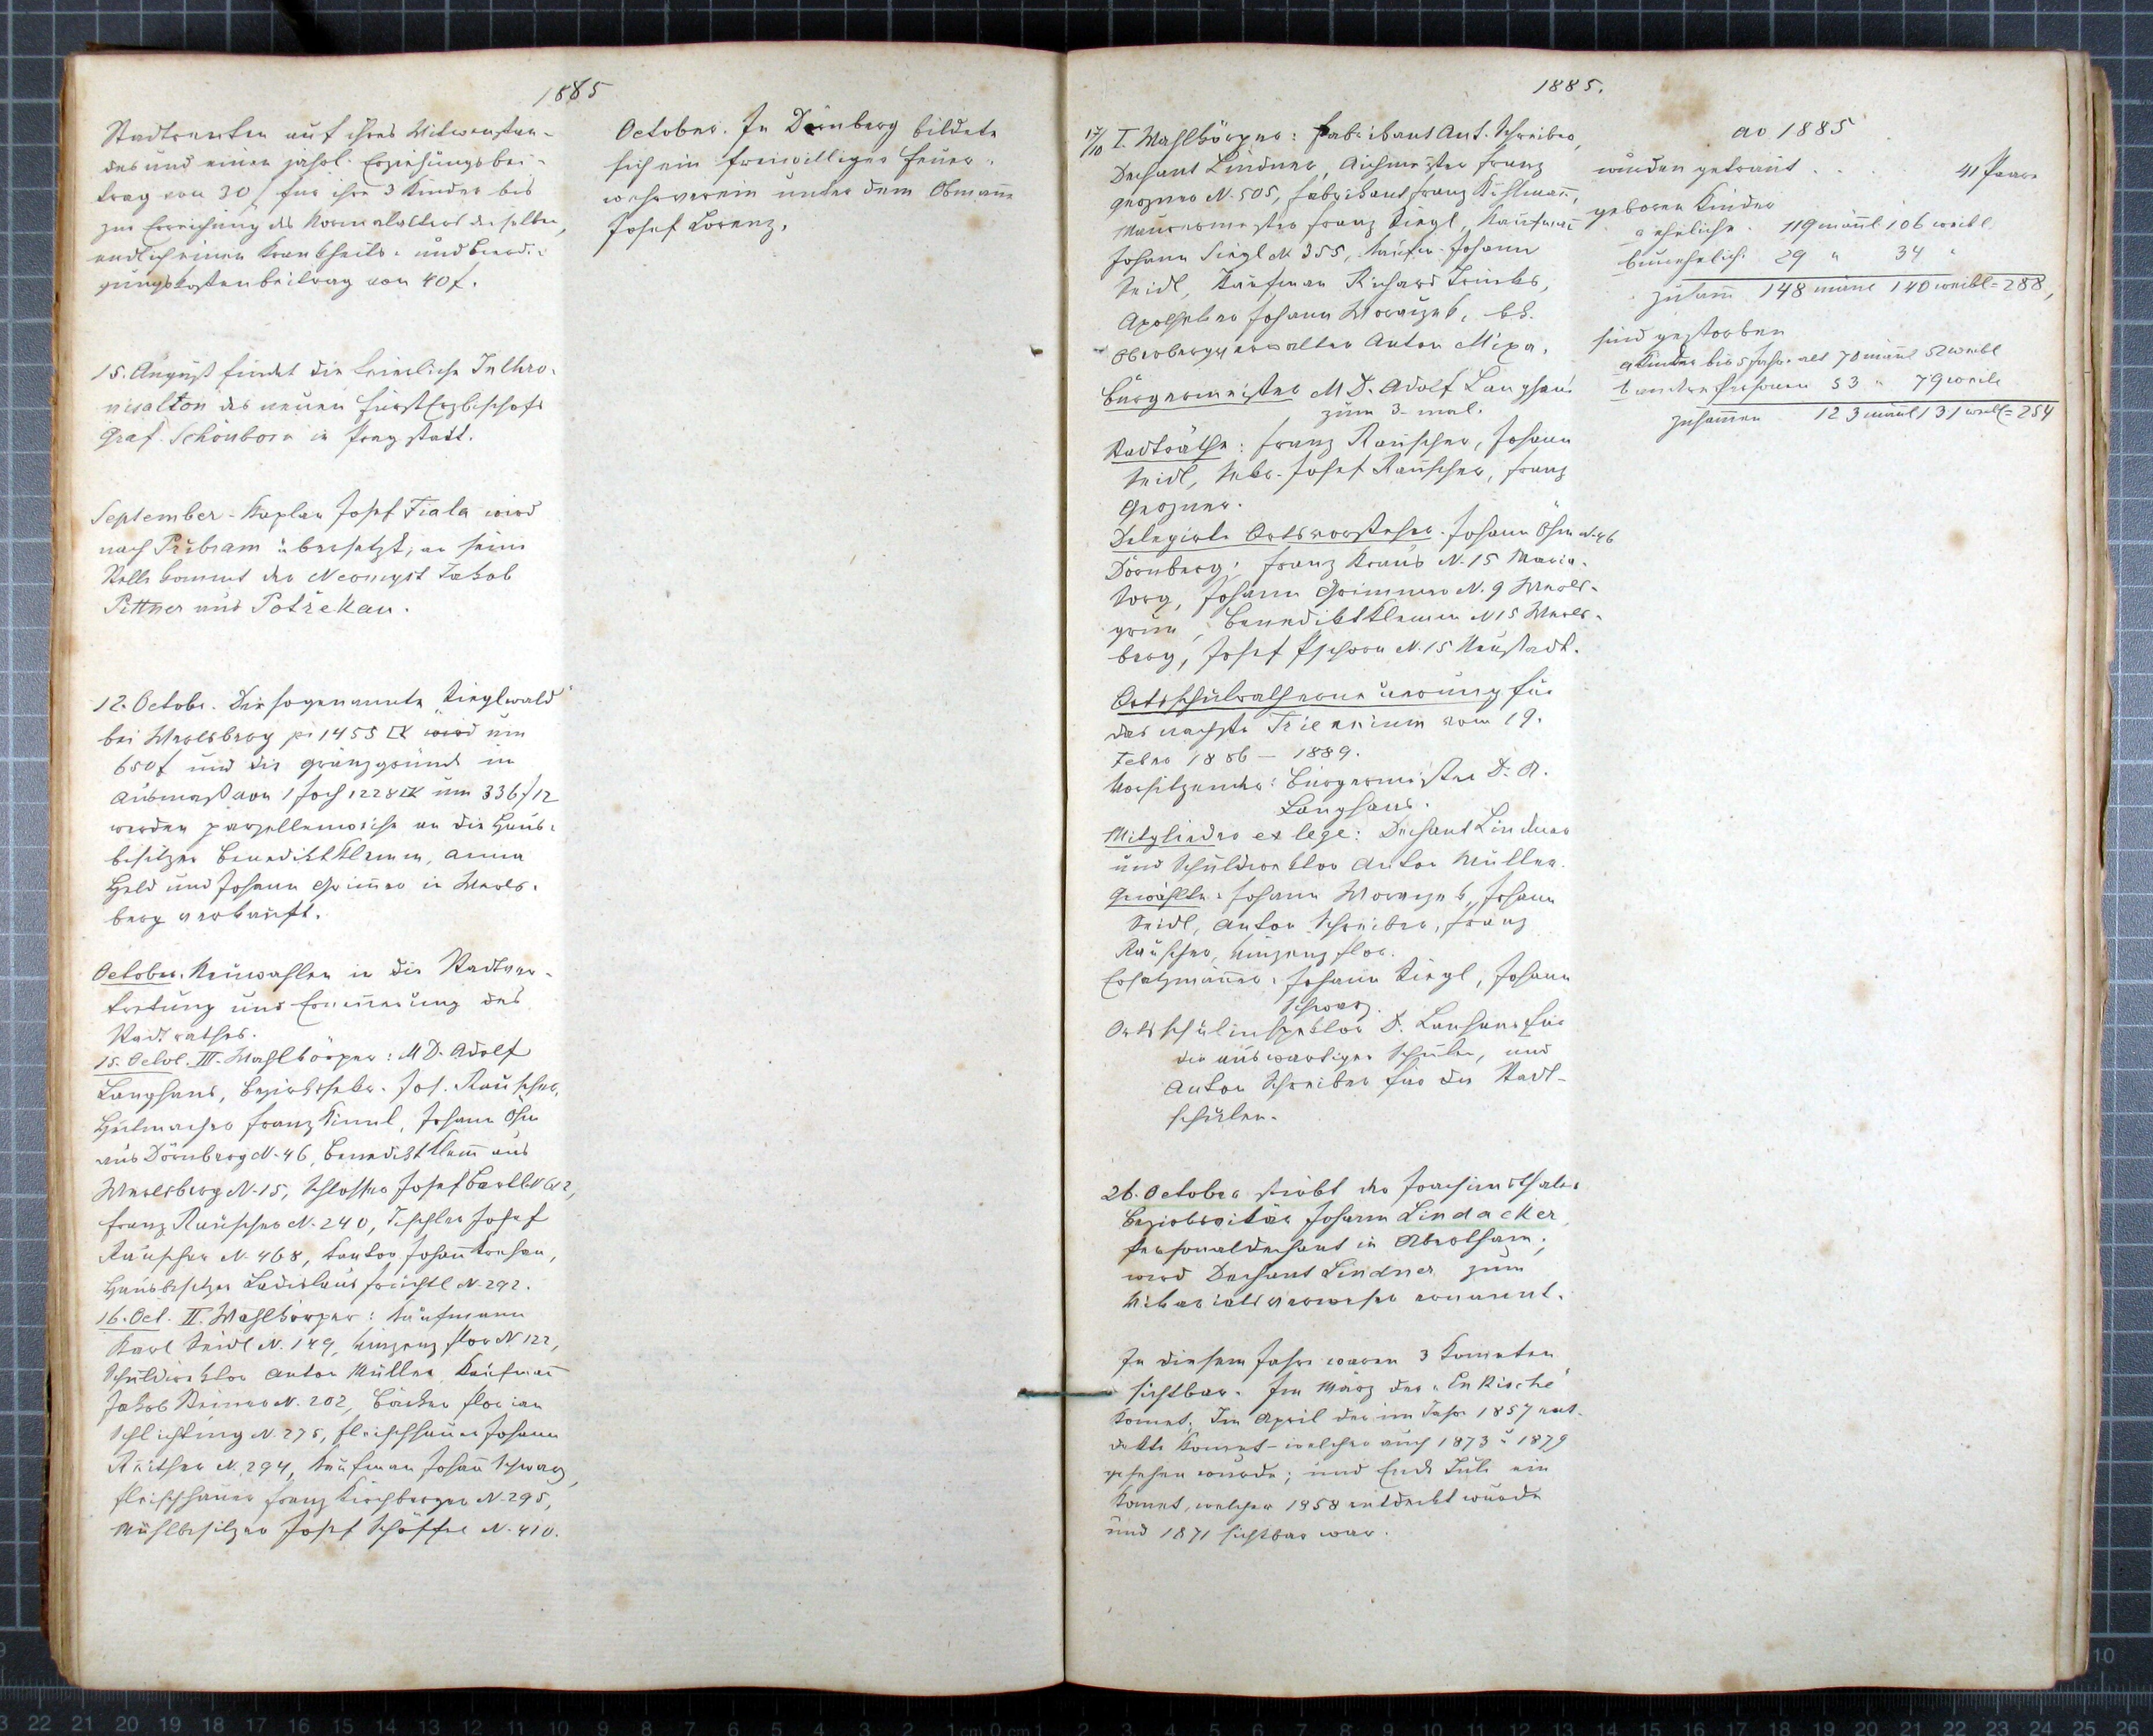 1885
Stadtrenten auf ihres Witwenstan-
des und einen jährl. Erziehungsbei-
trag von 30 f für ihre 3 Kinder bis
zur Erreichung des Normalalters derselben,
endlich einen Krankheits- und Beerdi-
gungskostenbeitrag von 40 f.
15. August findet die feierliche Inthro-
nisation des neuen Fürsterzbischofs
Graf Schönborn in Prag statt.
September - Kaplan Josef Fiala wird
nach Přibram übersetzt, an seine
Stelle kommt der Neomyst Jakob
Pittner aus Potřekau.
12. Octobr. Die sogenannte „Zieglwald"
bei Werlsberg pr 1455 □K wird um
650 f und die Gränzgründe im
Ausmaß von 1 Joch 1228 □K um 336 f 12
werden parzellenweise an die Haus-
besitzer Benedikt Klemm, Anna
Held und Johann Grimmer in Werls-
berg verkauft.
October. Neuwahlen in die Stadtver-
tretung und Ernennung des
Stadtrathes.
15. Octob. III. Wahlkörper: MD. Adolf
Langhans, Bezirkssekr. Jos. Rauscher,
Hutmacher Franz Kiml, Johann Öhm
aus Dörnberg N. 46, Benedikt Klem̅ aus
Werlsberg N. 15, Schlosser Josef Bartl N
Franz Rauscher N. 240, Tischler Josef
Rauscher N. 468, Kantor Johan̅
Hausbesitzer Ladislaus Früchtl N. 292.
16. Oct. II. Wahlkörper: Kaufmann
Karl Seidl N. 149, Vinzenz Flor N 122,
Schuldirektor Anton Müller, Kaufman̅
Jakob Steiner N. 202, Bäcker Florian
Schlichting N. 275, Fleischhauer Johann
N. 294, Kaufman Johan̅ Schwarz,
Fleischhauer Franz Kirchberger N. 295,
Mühlbesitzer Josef Schöffel N. 410.
October. In Dörnberg bildete
sich ein freiwilliger Feuer-
wehrverein unter dem Obman̅e
Josef Lorenz.
1885.
17/10 I. Wahlkörper: Fabrikant Ant. Schreiber,
Dechant Lindner, Aichmeister Franz
Grozner N. 505, Fabrikant Franz Kühlman̅,
Maurermeister Franz Ziegl, Kaufman̅
Johann Siegl N 355, Kaufm. Johann
Seidl, Kaufman Richard Trinks,
Apotheker Johann Woraczek, kk.
Oberbergverwalter Anton Mixa.
Bürgermeister MD. Adolf Langhans
zum 3-mal.
Stadträthe: Franz Rauscher, Johann
Seidl, Sekr. Josef Rauscher, Franz
Grozner.
Delegirte Ortsvorsteher. Johann Öhm N. 46
Dörnberg, Franz Kraus N. 15 Maria-
sorg, Johann Grimmer N. 9 Werls-
grün, Benedikt Klemm N 15 Werls-
berg, Josef Pschorn N. 15 Neustadt.
Ortsschulratherneuerung für
das nachste Triennium vom 19.
Feber 1886 – 1889.
Vorsitzender: Bürgermeister D. A.
Langhans.
Mitglieder ex lege: Dechant Lindner
und Schuldirektor Anton Müller.
Gewählte: Johann Woraczek, Johann
Seidl, Anton Schreiber, Franz
Rauscher, Vinzenz Flor.
Ersatzmänner: Johann Ziegl, Johann
Schwarz.
Ortsschulinspektor D. Lanhans für
die auswartigen Schulen, und
Anton Schreiber für die Stadt-
schulen.
26. October stirbt der Joachimsthaler
Bezirksvikär Johann Lindacker,
Personaldechant in Abertham;
wird Dechant Lindner zum
Vikariatsverweser ernannt.
In diesem Jahre waren 3 Kometen
sichtbar. Im März der „Enkische"
Komet; Im April der im Jahre 1857 ent-
dekte Komet – welcher auch 1873 u 1879
gesehen wurde; und Ende Juli ein
Komet, welcher 1858 entdeckt wurde
und 1871 sichtbar war.
ao 1885
wurden getraut . . . 41 Paare
geboren Kinder
a eheliche . 119 män̅l. 106 weibl.
b unehelich. 29 " 34 "
zusam̅ 148 män̅l 140 weibl = 288,
sind gestorben
a Kinder bis 5 Jahre alt 70 män̅l 52 weibl
b andere Personen 53 " 79 weibl
zusammen 123 män̅l 131 weibl = 254